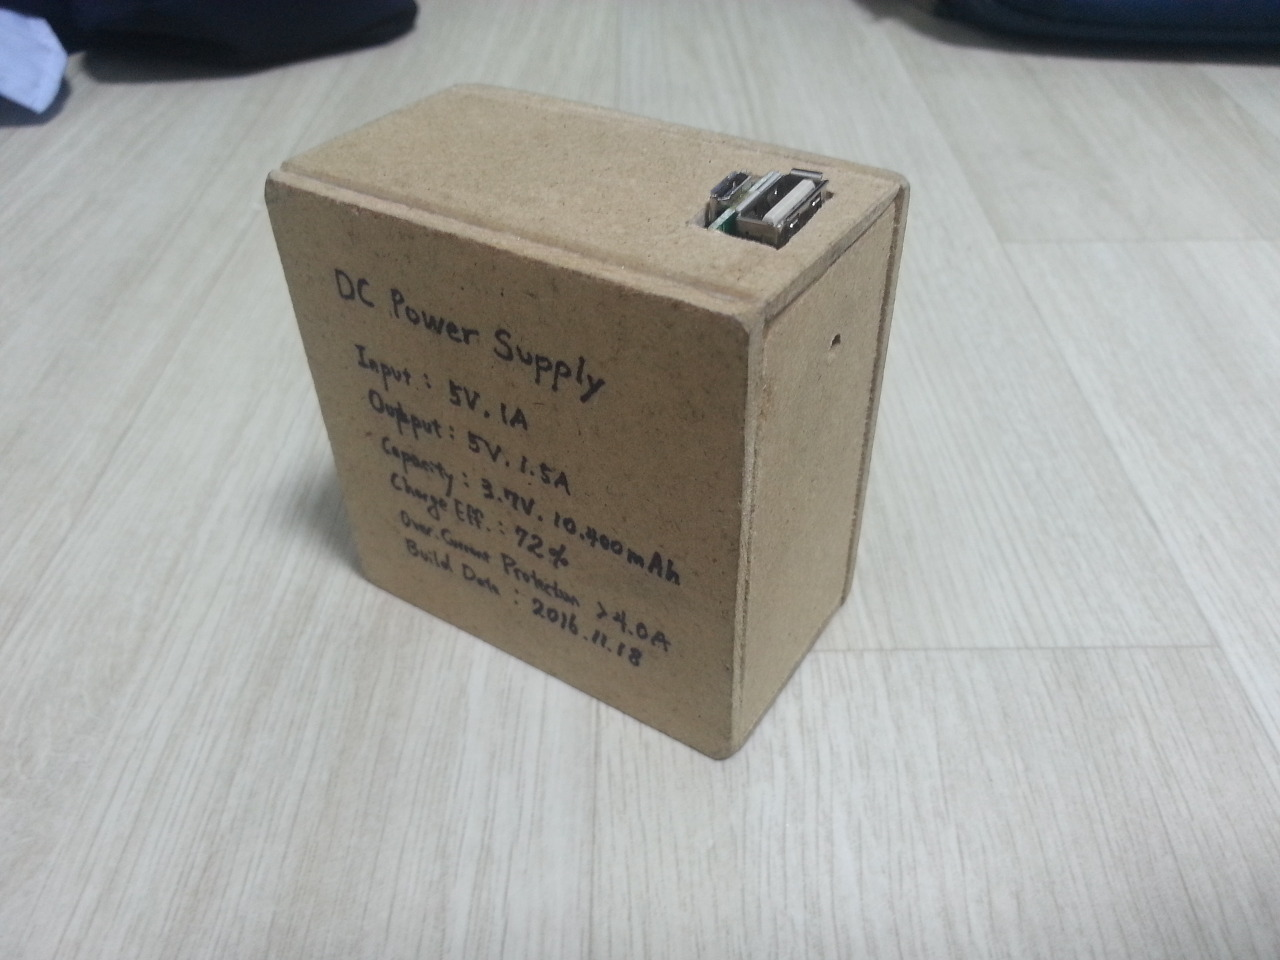 DC Power Supply
Input : 5V. 1A
Output : 5V. 1.5A
Capacity : 3.7V. 10.400mAh
Charge Eff. : 72%
Over.Current Protection > 4.0A
Build Date : 2016.11.18